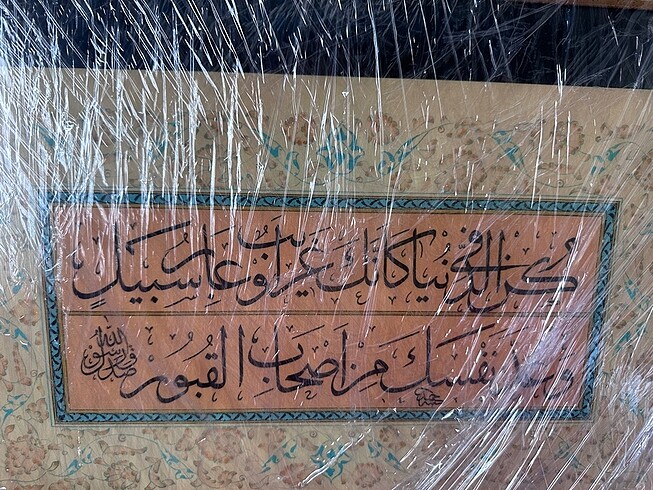 كن في الدنيا كأنك غريب أو عابر سبيل
وعد نفسك من أصحاب القبور
صدق رسول الله